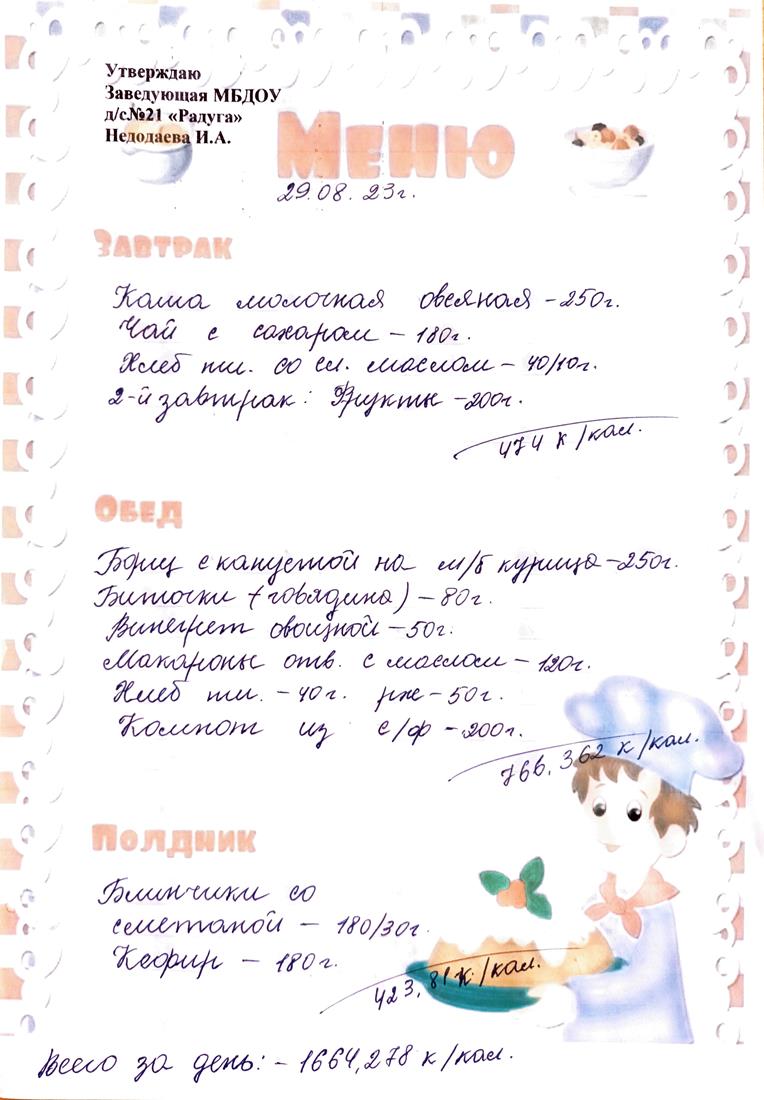 Утверждаю
Заведующая МБДОУ
д/с№21 «Радуга»
Недодаева И.А.
Меню
29.08.23г.
Завтрак
Каша молочная овсяная - 250г.
Чай с сахаром - 180г.
Хлеб пш. со сл. маслом - 40/10г.
2-й завтрак: Фрукты - 200г.
474 к/кал.
Обед
Борщ с капустой на м/б курица - 250г.
Биточки (говядина) - 80г.
Винегрет овощной - 50г.
Макароны отв. с маслом - 120г.
Хлеб пш. - 40г. рж - 50г.
Компот из с/ф - 200г.
766,362 к/кал.
Полдник
Блинчики со
сметаной - 180/30г.
Кефир - 180г.
423,81 к/кал.
Всего за день: - 1664,278 к/кал.